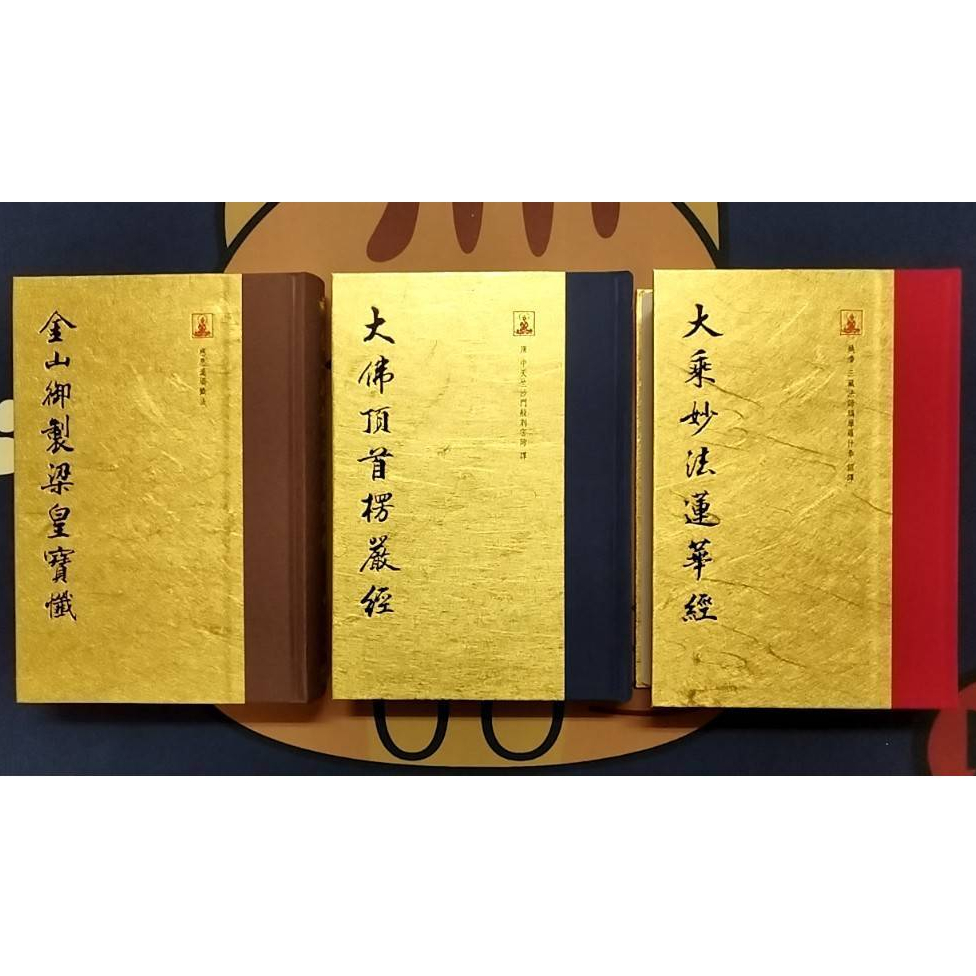 金山御製梁皇寶懺
慈悲道場懺法
大佛頂首楞嚴經
唐 中天竺沙門般剌密諦 譯
大乘妙法蓮華經
姚秦 三藏法師鳩摩羅什奉 詔譯